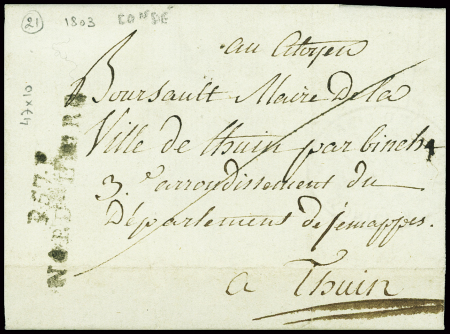 21 1803 CONDÉ
47x10
P.57.P.
NORD-LIBRE
au Citoyen
Boursault Maire De la
Ville de thuin par binch
3.e arrondissement du
Département de jemappes.
a Thuin